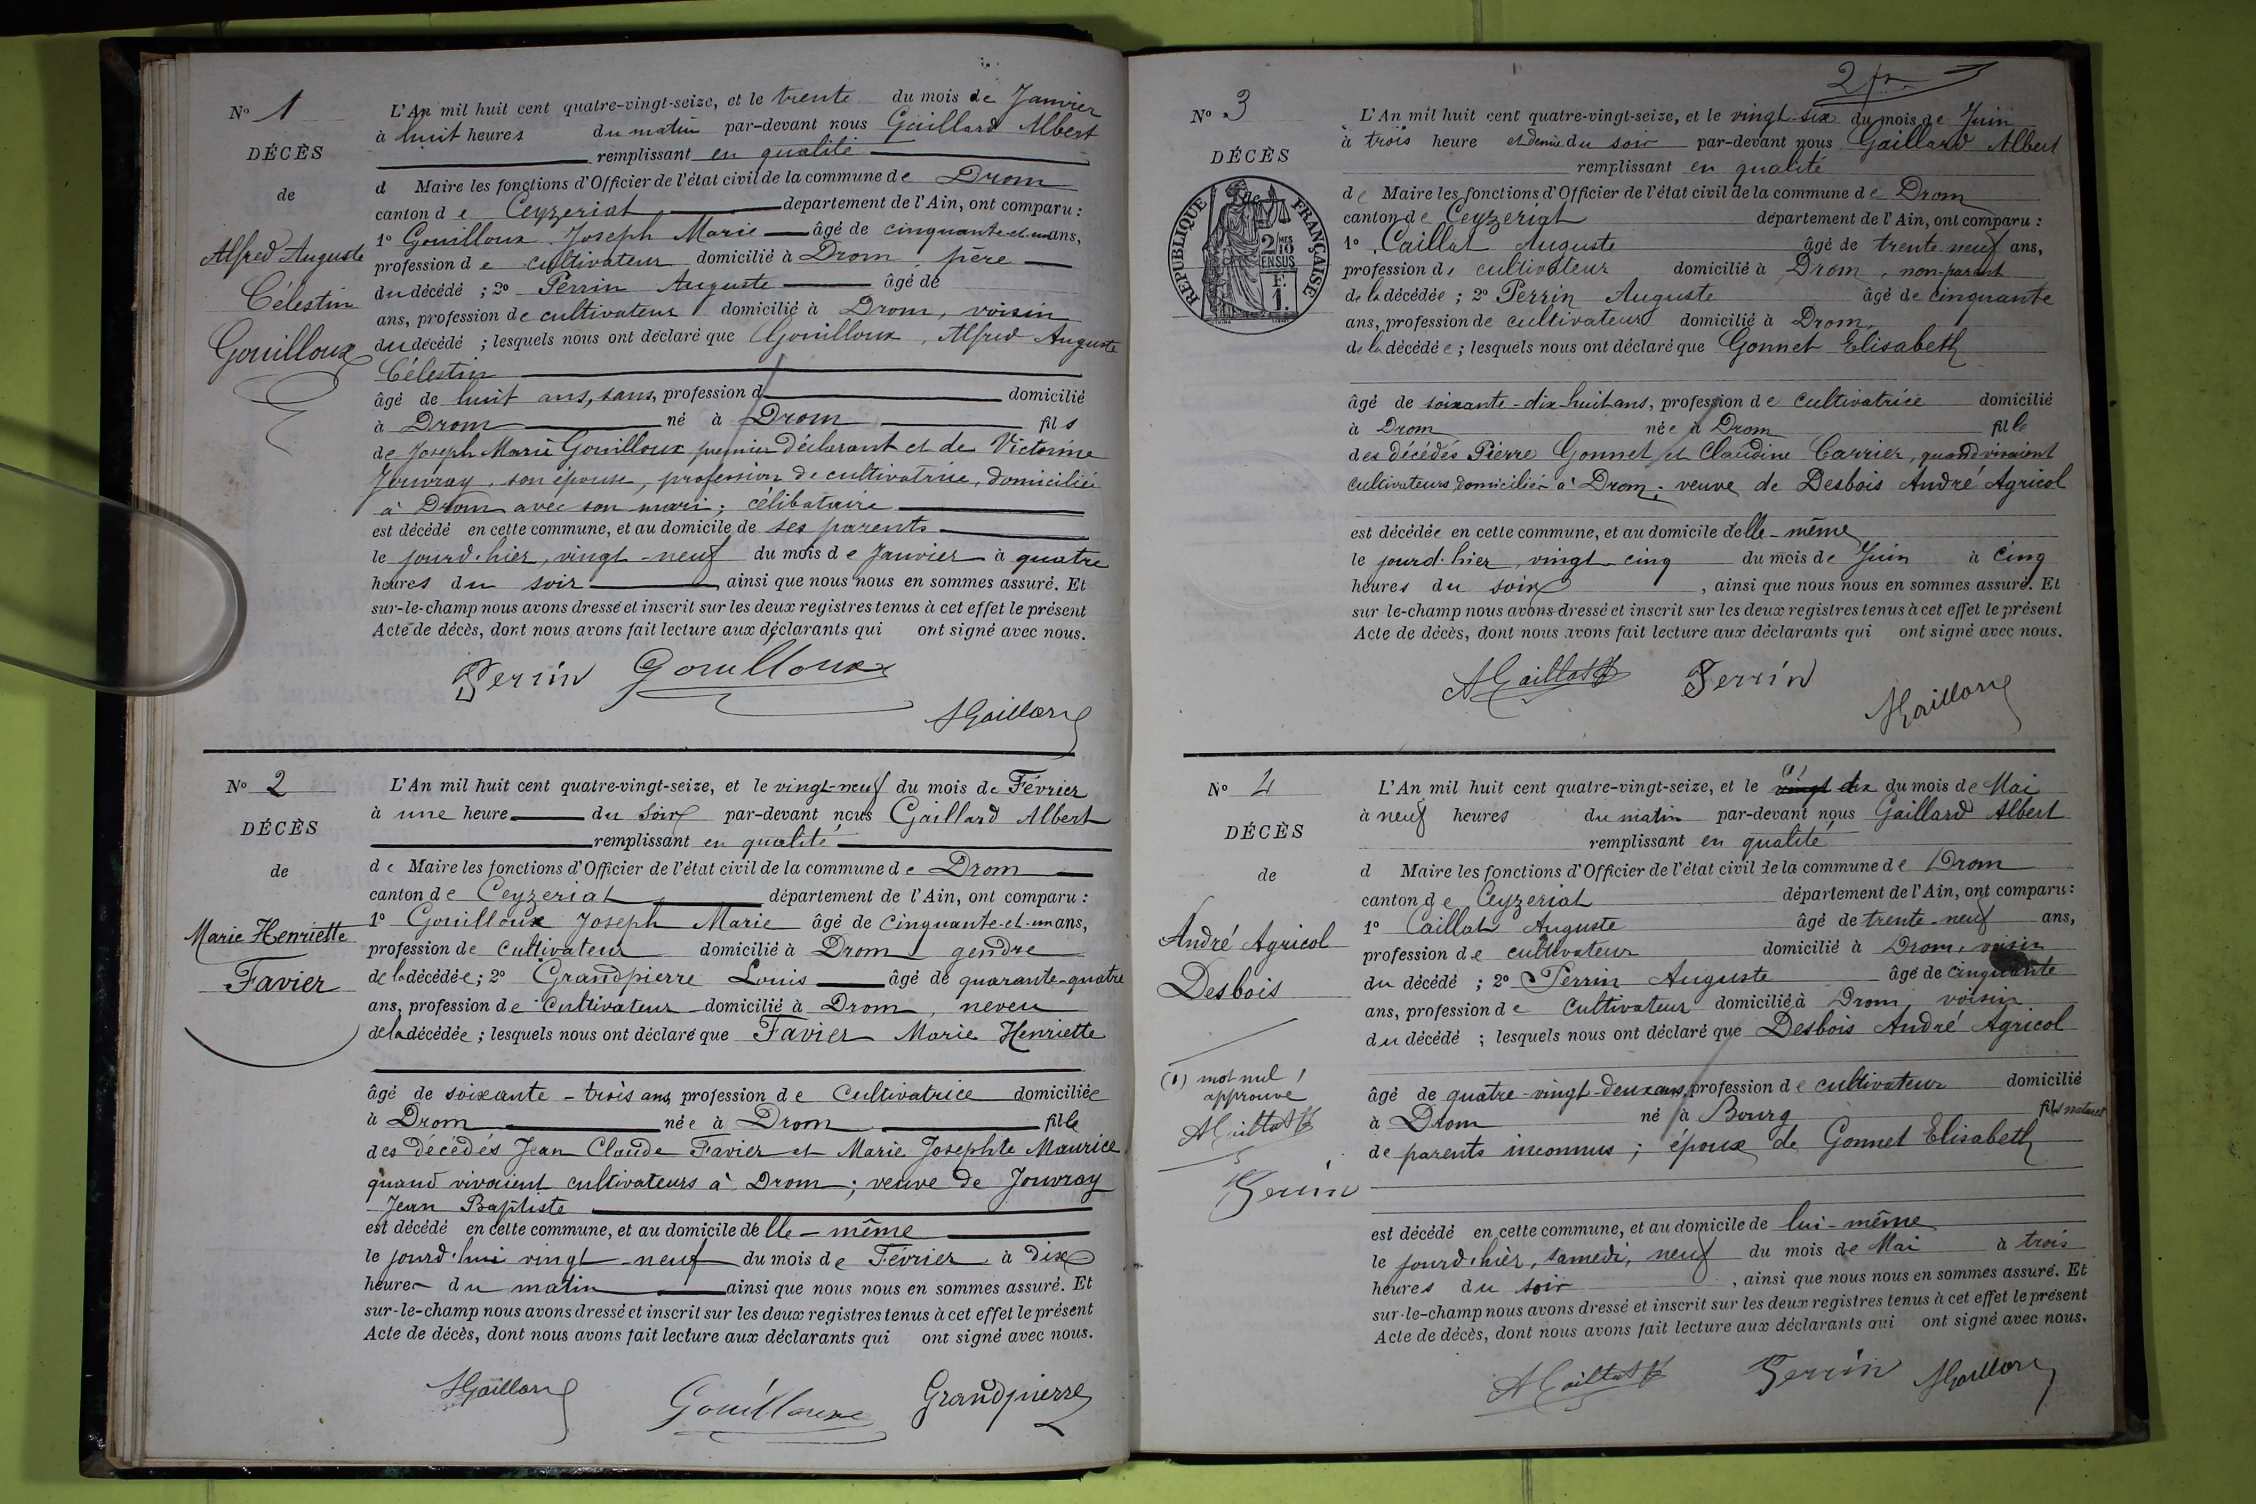 N° 1
DÉCÈS
de
Alfred Auguste
Célestin
Gouilloux
L'An mil huit cent quatre-vingt-seize, et le trente du mois de Janvier
à huit heures du matin par-devant nous Gaillard Albert
remplissant en qualité
d Maire les fonctions d'Officier de l'état civil de la commune de Drom
canton de Ceyzeriat département de l'Ain, ont comparu :
1° Gouilloux Joseph Marie âgé de cinquante-et-un ans,
profession de cultivateur domicilié à Drom, père
du décédé ; 2° Perrin Auguste âgé de
ans, profession de cultivateur domicilié à Drom, voisin
du décédé ; lesquels nous ont déclaré que Gouilloux, Alfred Auguste
Célestin
âgé de huit ans, sans, profession d domicilié
à Drom né à Drom fils
de Joseph Marie Gouilloux premier déclarant et de Victorine
Jouvray, son épouse, profession de cultivatrice, domiciliée
à Drom avec son mari ; célibataire
est décédé en cette commune, et au domicile de ses parents
le jourd'hier, vingt-neuf du mois de Janvier à quatre
heures du soir ainsi que nous nous en sommes assuré. Et
sur-le-champ nous avons dressé et inscrit sur les deux registres tenus à cet effet le présent
Acte de décès, dont nous avons fait lecture aux déclarants qui ont signé avec nous.
Perrin Gouilloux
AGaillard
N° 2
DÉCÈS
de
Marie Henriette
Favier
L'An mil huit cent quatre-vingt-seize, et le vingt-neuf du mois de Février
à une heure du soir par-devant nous Gaillard Albert
remplissant en qualité
de Maire les fonctions d'Officier de l'état civil de la commune de Drom
canton de Ceyzeriat département de l'Ain, ont comparu :
1° Gouilloux Joseph Marie âgé de cinquante-et-un ans,
profession de cultivateur domicilié à Drom gendre
de la décédée ; 2° Grandpierre Louis âgé de quarante-quatre
ans, profession de cultivateur domicilié à Drom, neveu
de la décédée ; lesquels nous ont déclaré que Favier Marie Henriette
âgé de soixante-trois ans, profession de cultivatrice domiciliée
à Drom née à Drom fille
des décédés Jean Claude Favier et Marie Josephte Maurice
quand vivaient cultivateurs à Drom ; veuve de Jouvray
Jean Baptiste
est décédé en cette commune, et au domicile d'elle-même
le jourd'hui vingt-neuf du mois de Février à dix
heures du matin ainsi que nous nous en sommes assuré. Et
sur-le-champ nous avons dressé et inscrit sur les deux registres tenus à cet effet le présent
Acte de décès, dont nous avons fait lecture aux déclarants qui ont signé avec nous.
AGaillard Gouilloux Grandpierre
N° 3
DÉCÈS
de
RÉPUBLIQUE FRANÇAISE
2/10MES
EN SUS
1 F.
L'An mil huit cent quatre-vingt-seize, et le vingt-six du mois de Juin
à trois heure et demie du soir par-devant nous Gaillard Albert
remplissant en qualité
de Maire les fonctions d'Officier de l'état civil de la commune de Drom
canton de Ceyzeriat département de l'Ain, ont comparu :
1° Caillat Auguste âgé de trente-neuf ans,
profession de cultivateur domicilié à Drom, non-parent
de la décédée ; 2° Perrin Auguste âgé de cinquante
ans, profession de cultivateur domicilié à Drom,
de la décédée ; lesquels nous ont déclaré que Gonnet Elisabeth
âgé de soixante-dix-huit ans, profession de cultivatrice domicilié
à Drom née à Drom fille
des décédés Pierre Gonnet et Claudine Carrier, quand vivaient
cultivateurs domiciliés à Drom ; veuve de Desbois André Agricol
est décédée en cette commune, et au domicile d'elle-même
le jourd'hier, vingt-cinq du mois de Juin à cinq
heures du soir, ainsi que nous nous en sommes assuré. Et
sur-le-champ nous avons dressé et inscrit sur les deux registres tenus à cet effet le présent
Acte de décès, dont nous avons fait lecture aux déclarants qui ont signé avec nous.
ACaillat Perrin AGaillard
N° 4
DÉCÈS
de
André Agricol
Desbois
(1) mot nul
approuvé
ACaillat
Perrin
L'An mil huit cent quatre-vingt-seize, et le (1) vingt dix du mois de Mai
à neuf heures du matin par-devant nous Gaillard Albert
remplissant en qualité
d Maire les fonctions d'Officier de l'état civil de la commune de Drom
canton de Ceyzeriat département de l'Ain, ont comparu :
1° Caillat Auguste âgé de trente-neuf ans,
profession de cultivateur domicilié à Drom, voisin
du décédé ; 2° Perrin Auguste âgé de cinquante
ans, profession de cultivateur domicilié à Drom, voisin
du décédé ; lesquels nous ont déclaré que Desbois André Agricol
âgé de quatre-vingt-deux ans, profession de cultivateur domicilié
à Drom né à Bourg fils naturel
de parents inconnus ; époux de Gonnet Elisabeth
est décédé en cette commune, et au domicile de lui-même
le jourd'hier, samedi, neuf du mois de Mai à trois
heures du soir, ainsi que nous nous en sommes assuré. Et
sur-le-champ nous avons dressé et inscrit sur les deux registres tenus à cet effet le présent
Acte de décès, dont nous avons fait lecture aux déclarants qui ont signé avec nous.
ACaillat Perrin AGaillard